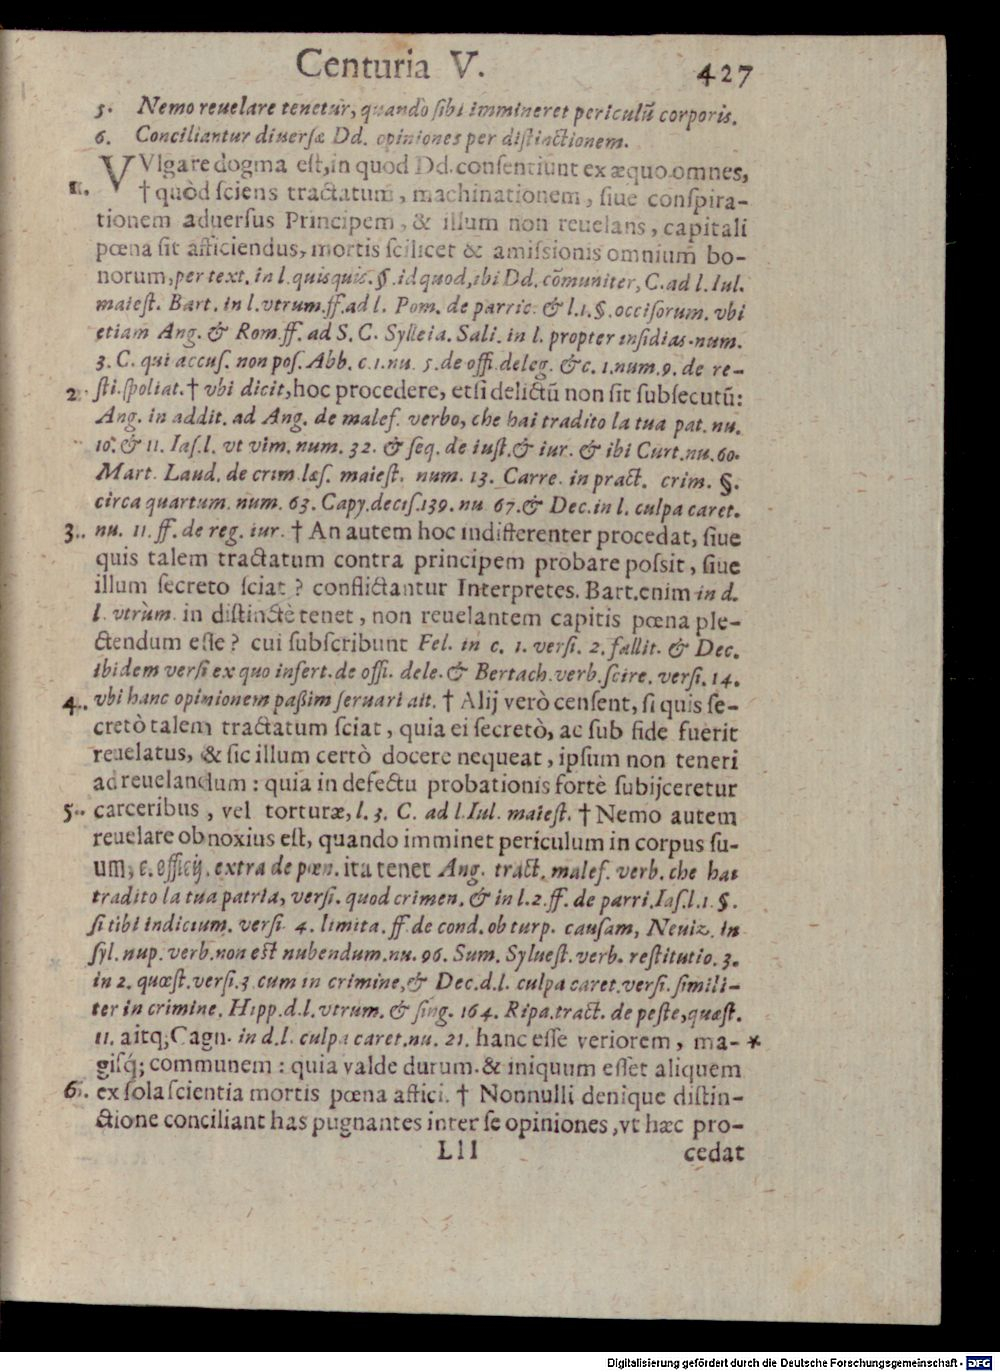 Centuria V. 427
5. Nemo reuelare tenetur, quando sibi immineret periculũ corporis.
6. Conciliantur diuersæ Dd. opiniones per distinctionem.
VVlgare dogma est, in quod Dd. consentiunt ex æquo omnes,
1. † quòd sciens tractatum, machinationem, siue conspira-
tionem aduersus Principem, & illum non reuelans, capitali
pœna sit afficiendus, mortis scilicet & amissionis omnium bo-
norum, per text. in l. quisquis. §. id quod, ibi Dd. cõmuniter, C. ad l. Iul.
maiest. Bart. in l. vtrum. ff. ad l. Pom. de parric. & l. 1. §. occisorum. vbi
etiam Ang. & Rom. ff. ad S. C. Sylleia. Sali. in l. propter insidias. num.
3. C. qui accus. non pos. Abb. c. 1. nu. 5. de offi. deleg. & c. 1. num. 9. de re-
2. sti. spoliat. † vbi dicit, hoc procedere, etsi delictũ non sit subsecutũ:
Ang. in addit. ad Ang. de malef. verbo, che hai tradito la tua pat. nu.
10. & 11. Ias. l. vt vim. num. 32. & seq. de iust. & iur. & ibi Curt. nu. 60.
Mart. Laud. de crim. læs. maiest. num. 13. Carre. in pract. crim. §.
circa quartum. num. 63. Capy. decis. 139. nu. 67. & Dec. in l. culpa caret.
3. nu. 11. ff. de reg. iur. † An autem hoc indifferenter procedat, siue
quis talem tractatum contra principem probare possit, siue
illum secreto sciat? conflictantur Interpretes. Bart. enim in d.
l. vtrùm. in distinctè tenet, non reuelantem capitis pœna ple-
ctendum esse? cui subscribunt Fel. in c. 1. versi. 2. fallit. & Dec.
ibidem versi ex quo infert. de offi. dele. & Bertach. verb. scire. versi. 14.
4. vbi hanc opinionem paßim seruari ait. † Alij verò censent, si quis se-
cretò talem tractatum sciat, quia ei secretò, ac sub fide fuerit
reuelatus, & sic illum certò docere nequeat, ipsum non teneri
ad reuelandum: quia in defectu probationis fortè subijceretur
5. carceribus, vel torturæ, l. 3. C. ad l. Iul. maiest. † Nemo autem
reuelare obnoxius est, quando imminet periculum in corpus su-
um, c. officij. extra de pœn. ita tenet Ang. tract. malef. verb. che hai
tradito la tua patria, versi. quod crimen. & in l. 2. ff. de parri. Ias. l. 1. §.
si tibi indicium. versi. 4. limita. ff. de cond. ob turp. causam, Neuiz. in
syl. nup. verb. non est nubendum. nu. 96. Sum. Syluest. verb. restitutio. 3.
in 2. quæst. versi. 3 cum in crimine, & Dec. d. l. culpa caret. versi. simili-
ter in crimine, Hipp. d. l. vtrum. & sing. 164. Ripa. tract. de peste, quæst.
11. aitq; Cagn. in d. l. culpa caret. nu. 21. hanc esse veriorem, ma- *
gisq́; communem: quia valde durum & iniquum esset aliquem
6. ex sola scientia mortis pœna affici. † Nonnulli denique distin-
ctione conciliant has pugnantes inter se opiniones, vt hæc pro-
Lll cedat
Digitalisierung gefördert durch die Deutsche Forschungsgemeinschaft - DFG